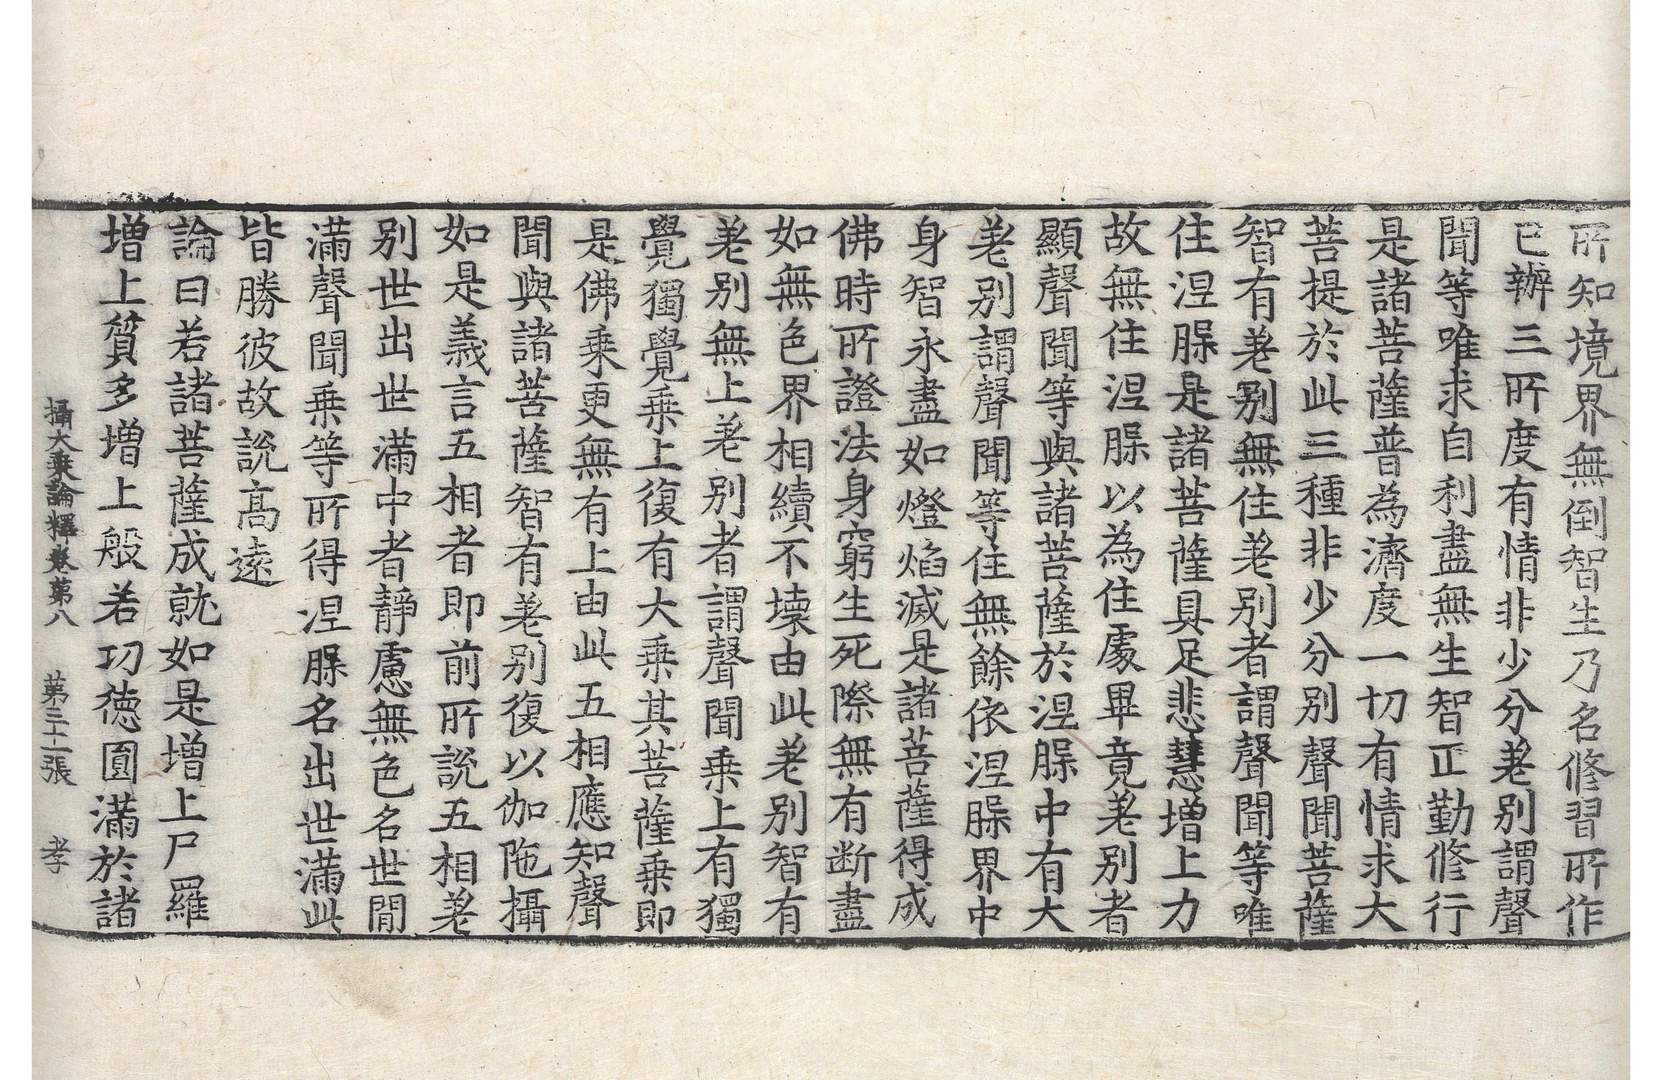 所知境界無倒智生乃名修習所作
已辦三所度有情非少分差別謂聲
聞等唯求自利盡無生智正勤修行
是諸菩薩普為濟度一切有情求大
菩提於此三種非少分別聲聞菩薩
智有差別無住差別者謂聲聞等唯
住涅槃是諸菩薩具足悲慧增上力
故無住涅槃以為住處畢竟差別者
顯聲聞等與諸菩薩於涅槃中有大
差別謂聲聞等住無餘依涅槃界中
身智永盡如燈焰滅是諸菩薩得成
佛時所證法身窮生死際無有斷盡
如無色界相續不壞由此差別智有
差別無上差別者謂聲聞乘上有獨
覺獨覺乘上復有大乘其菩薩乘即
是佛乘更無有上由此五相應知聲
聞與諸菩薩智有差別復以伽陁攝
如是義言五相者即前所說五相差
別世出世滿中者靜慮無色名世間
滿聲聞乘等所得涅槃名出世滿此
皆勝彼故說高遠
論曰若諸菩薩成就如是增上尸羅
增上質多增上般若功德圓滿於諸
攝大乘論釋卷第八　第三十二張　孝